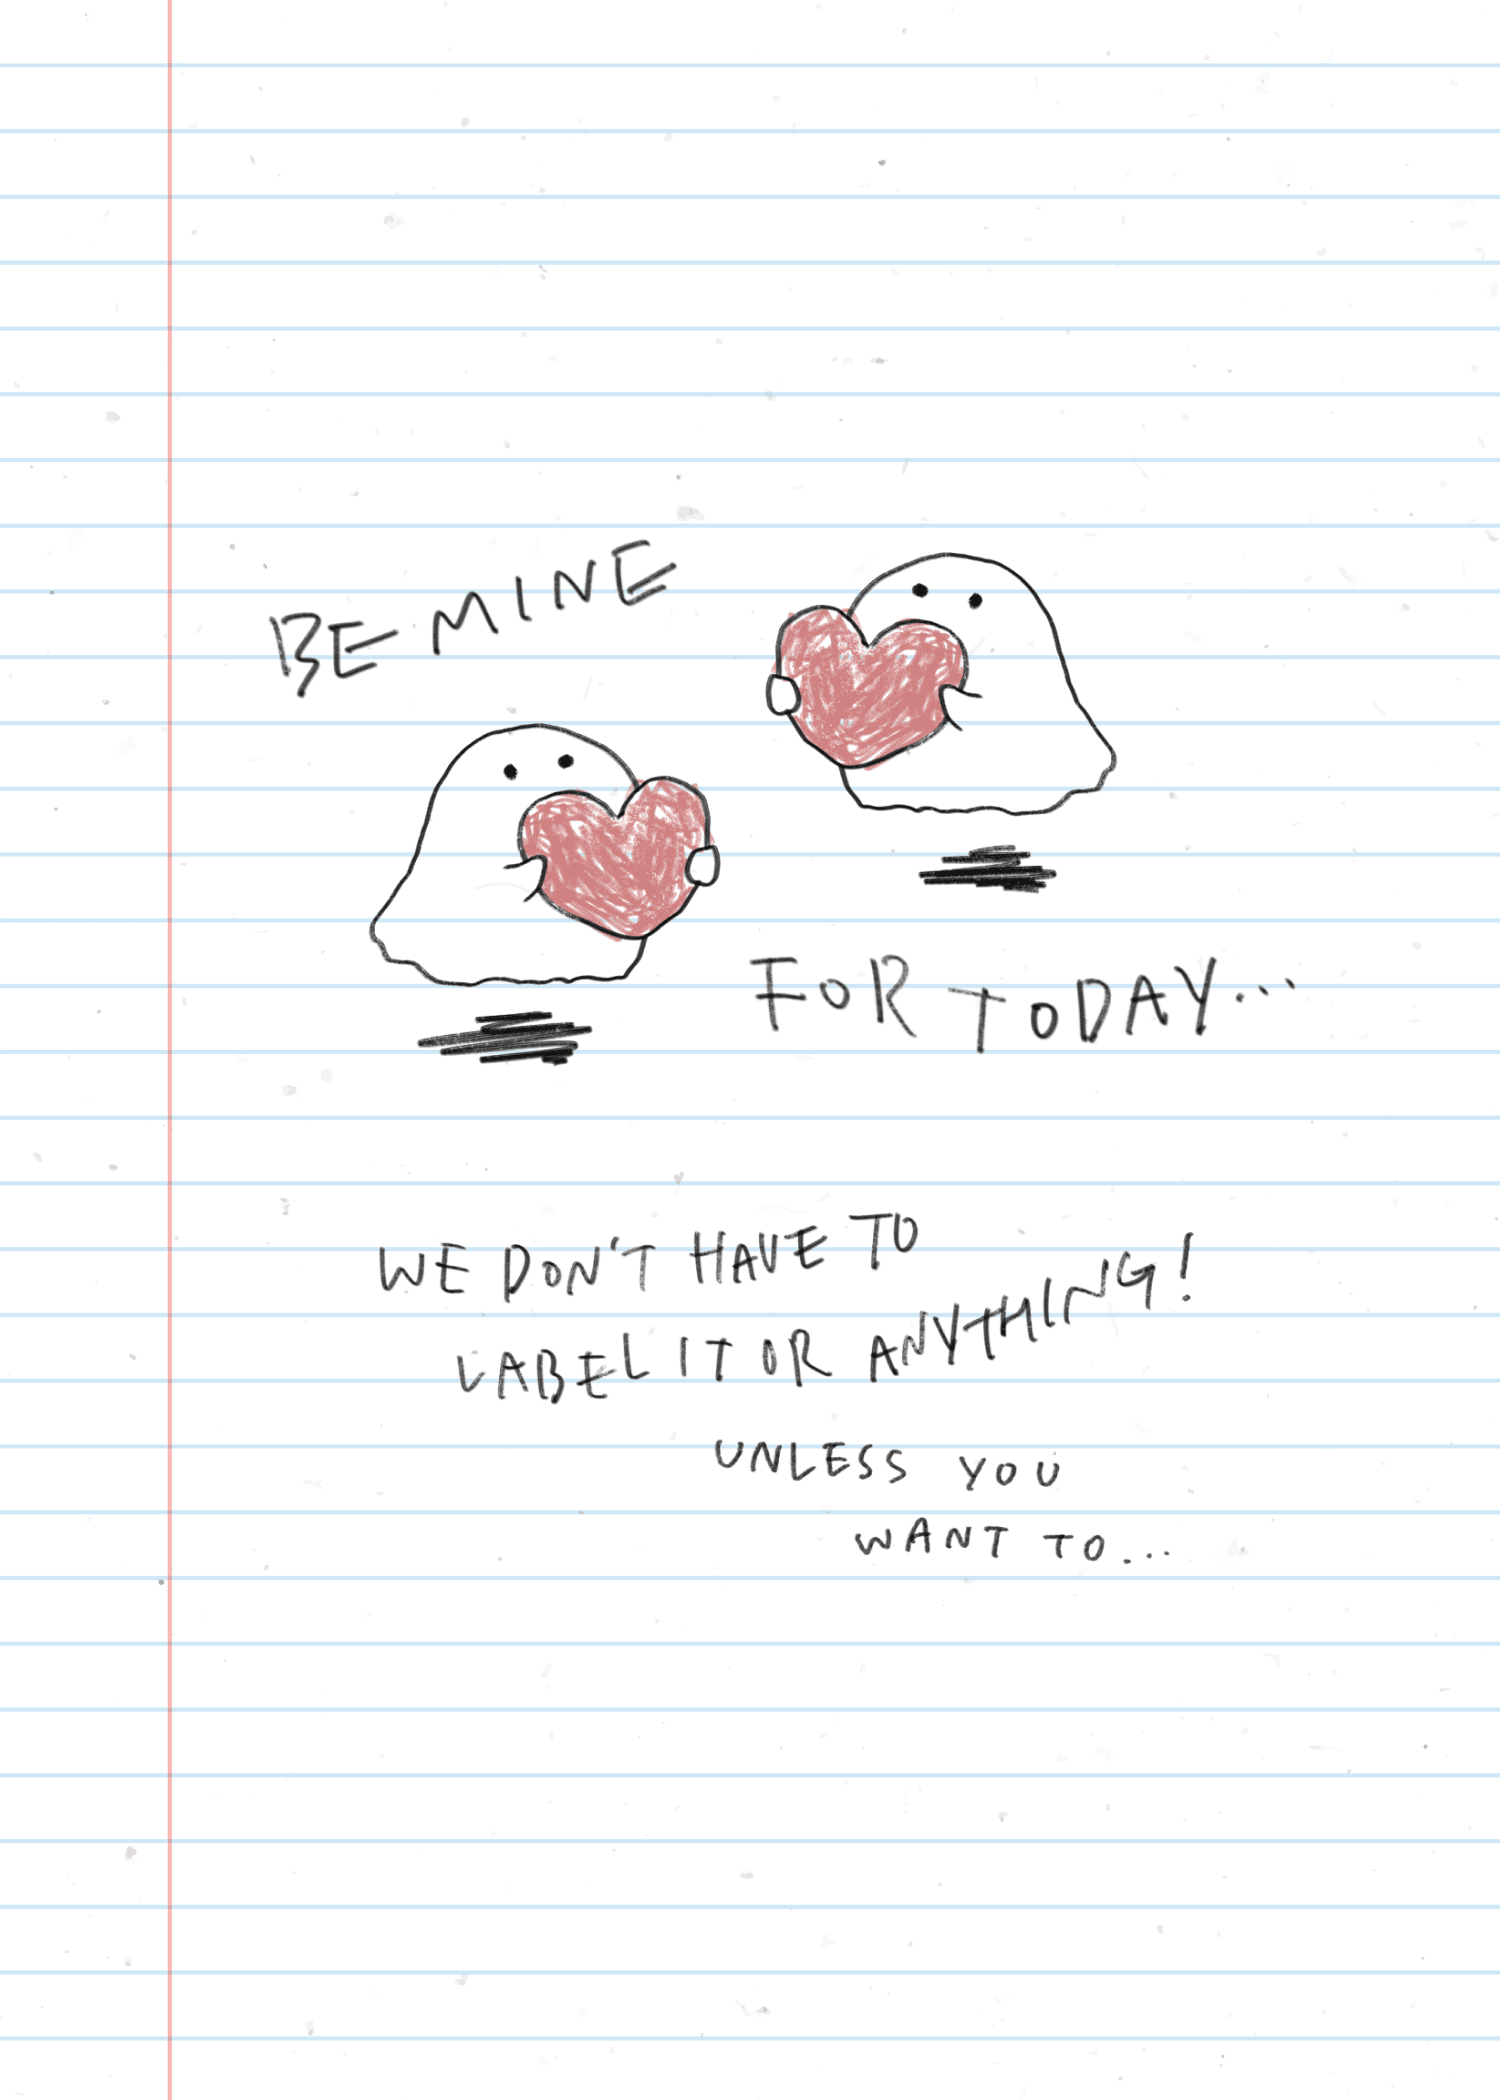 BE MINE
FOR TODAY...
WE DON'T HAVE TO
LABEL IT OR ANYTHING!
UNLESS YOU
WANT TO...